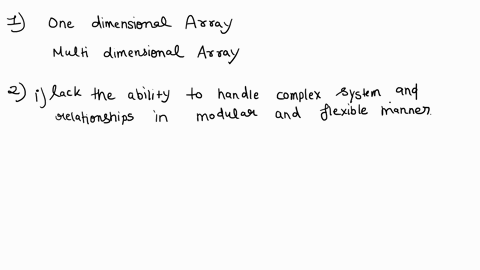 1) One dimensional Array
Multi dimensional Array
2) i) lack the ability to handle complex system and
relationships in modular and flexible manner.